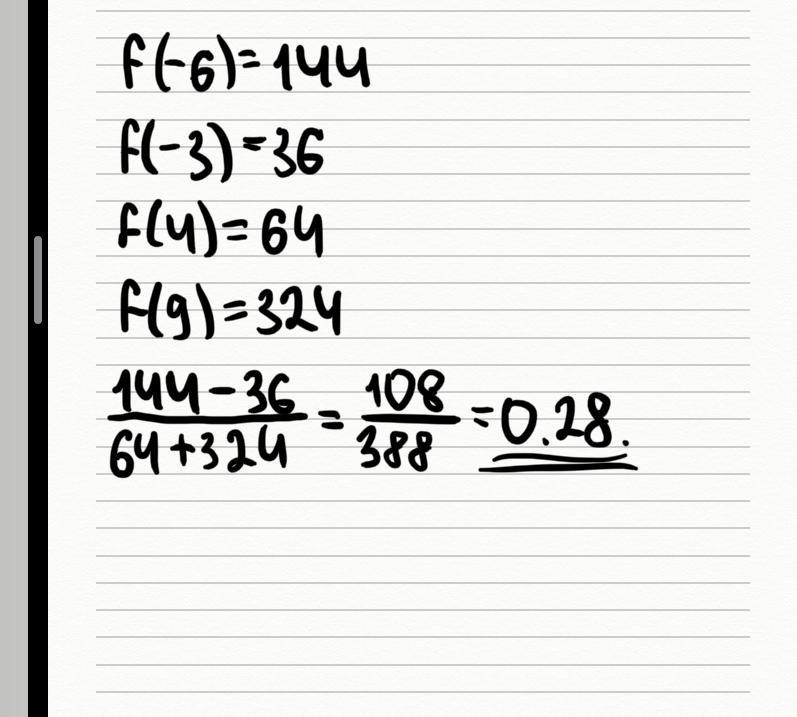 f(-6)=144
f(-3)=36
f(4)=64
f(9)=324
144-36/64+324 = 108/388 = 0.28.